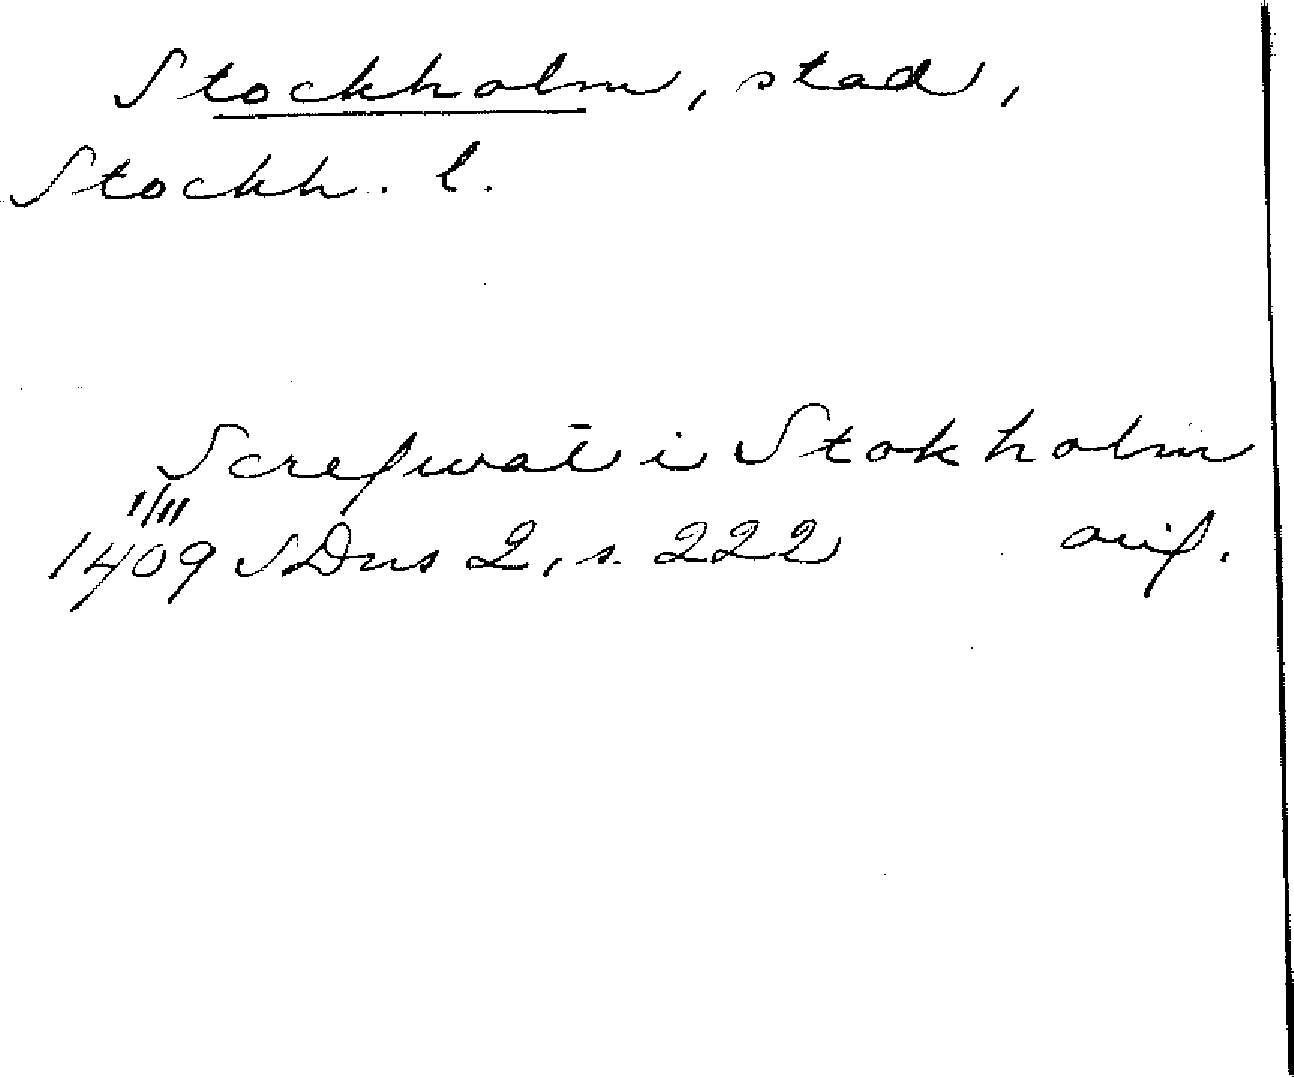 Stockholm, stad,
Stockh. l.
Screfwat i Stokholm
1/11
1409 SDns 2, s. 222 orig.